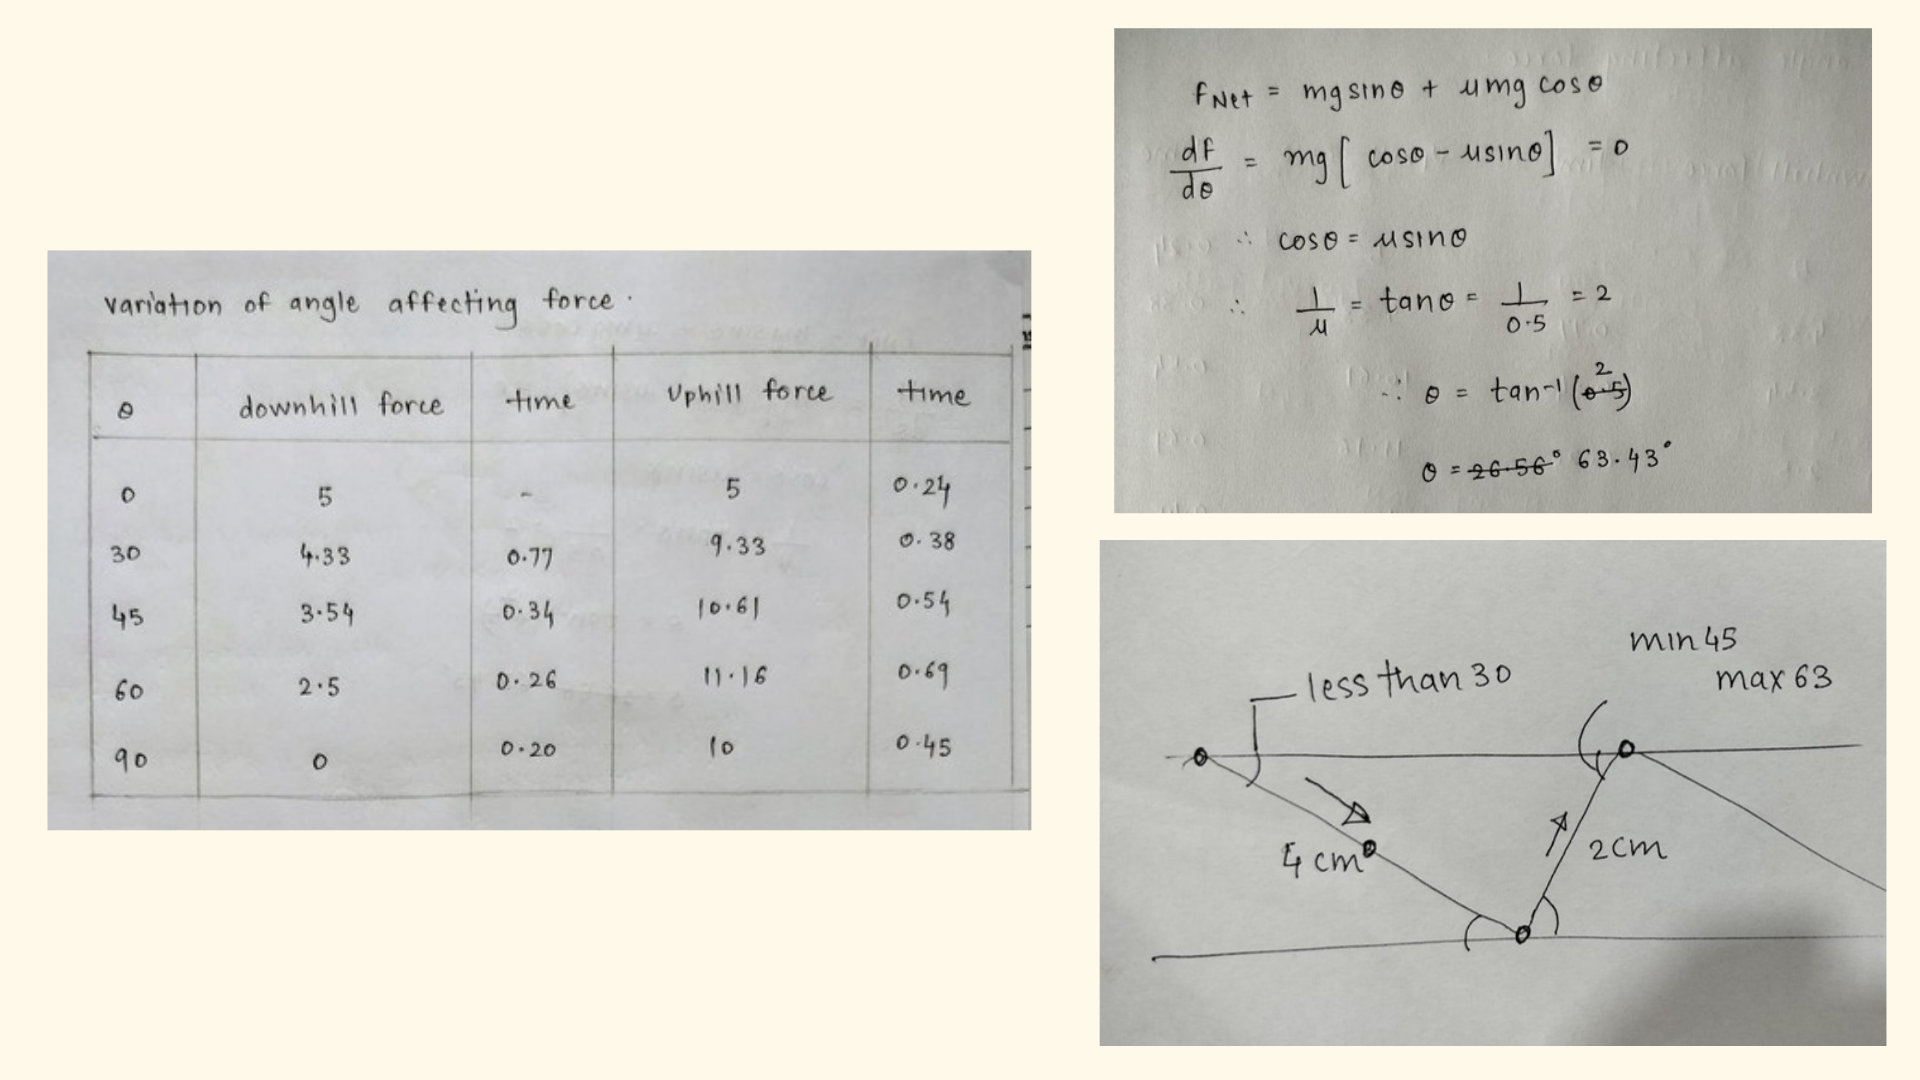 variation of angle affecting force.
θ downhill force time Uphill force time
0 5 - 5 0.24
30 4.33 0.77 9.33 0.38
45 3.54 0.34 10.61 0.54
60 2.5 0.26 11.16 0.69
90 0 0.20 10 0.45
fNet = mgsinθ + μmg cosθ
df/dθ = mg[ cosθ - μsinθ] = 0
∴ cosθ = μsinθ
∴ 1/μ = tanθ = 1/0.5 = 2
∴ θ = tan-1(0.5) 2
θ = 26.56° 63.43°
min 45
max 63
less than 30
4 cm
2cm